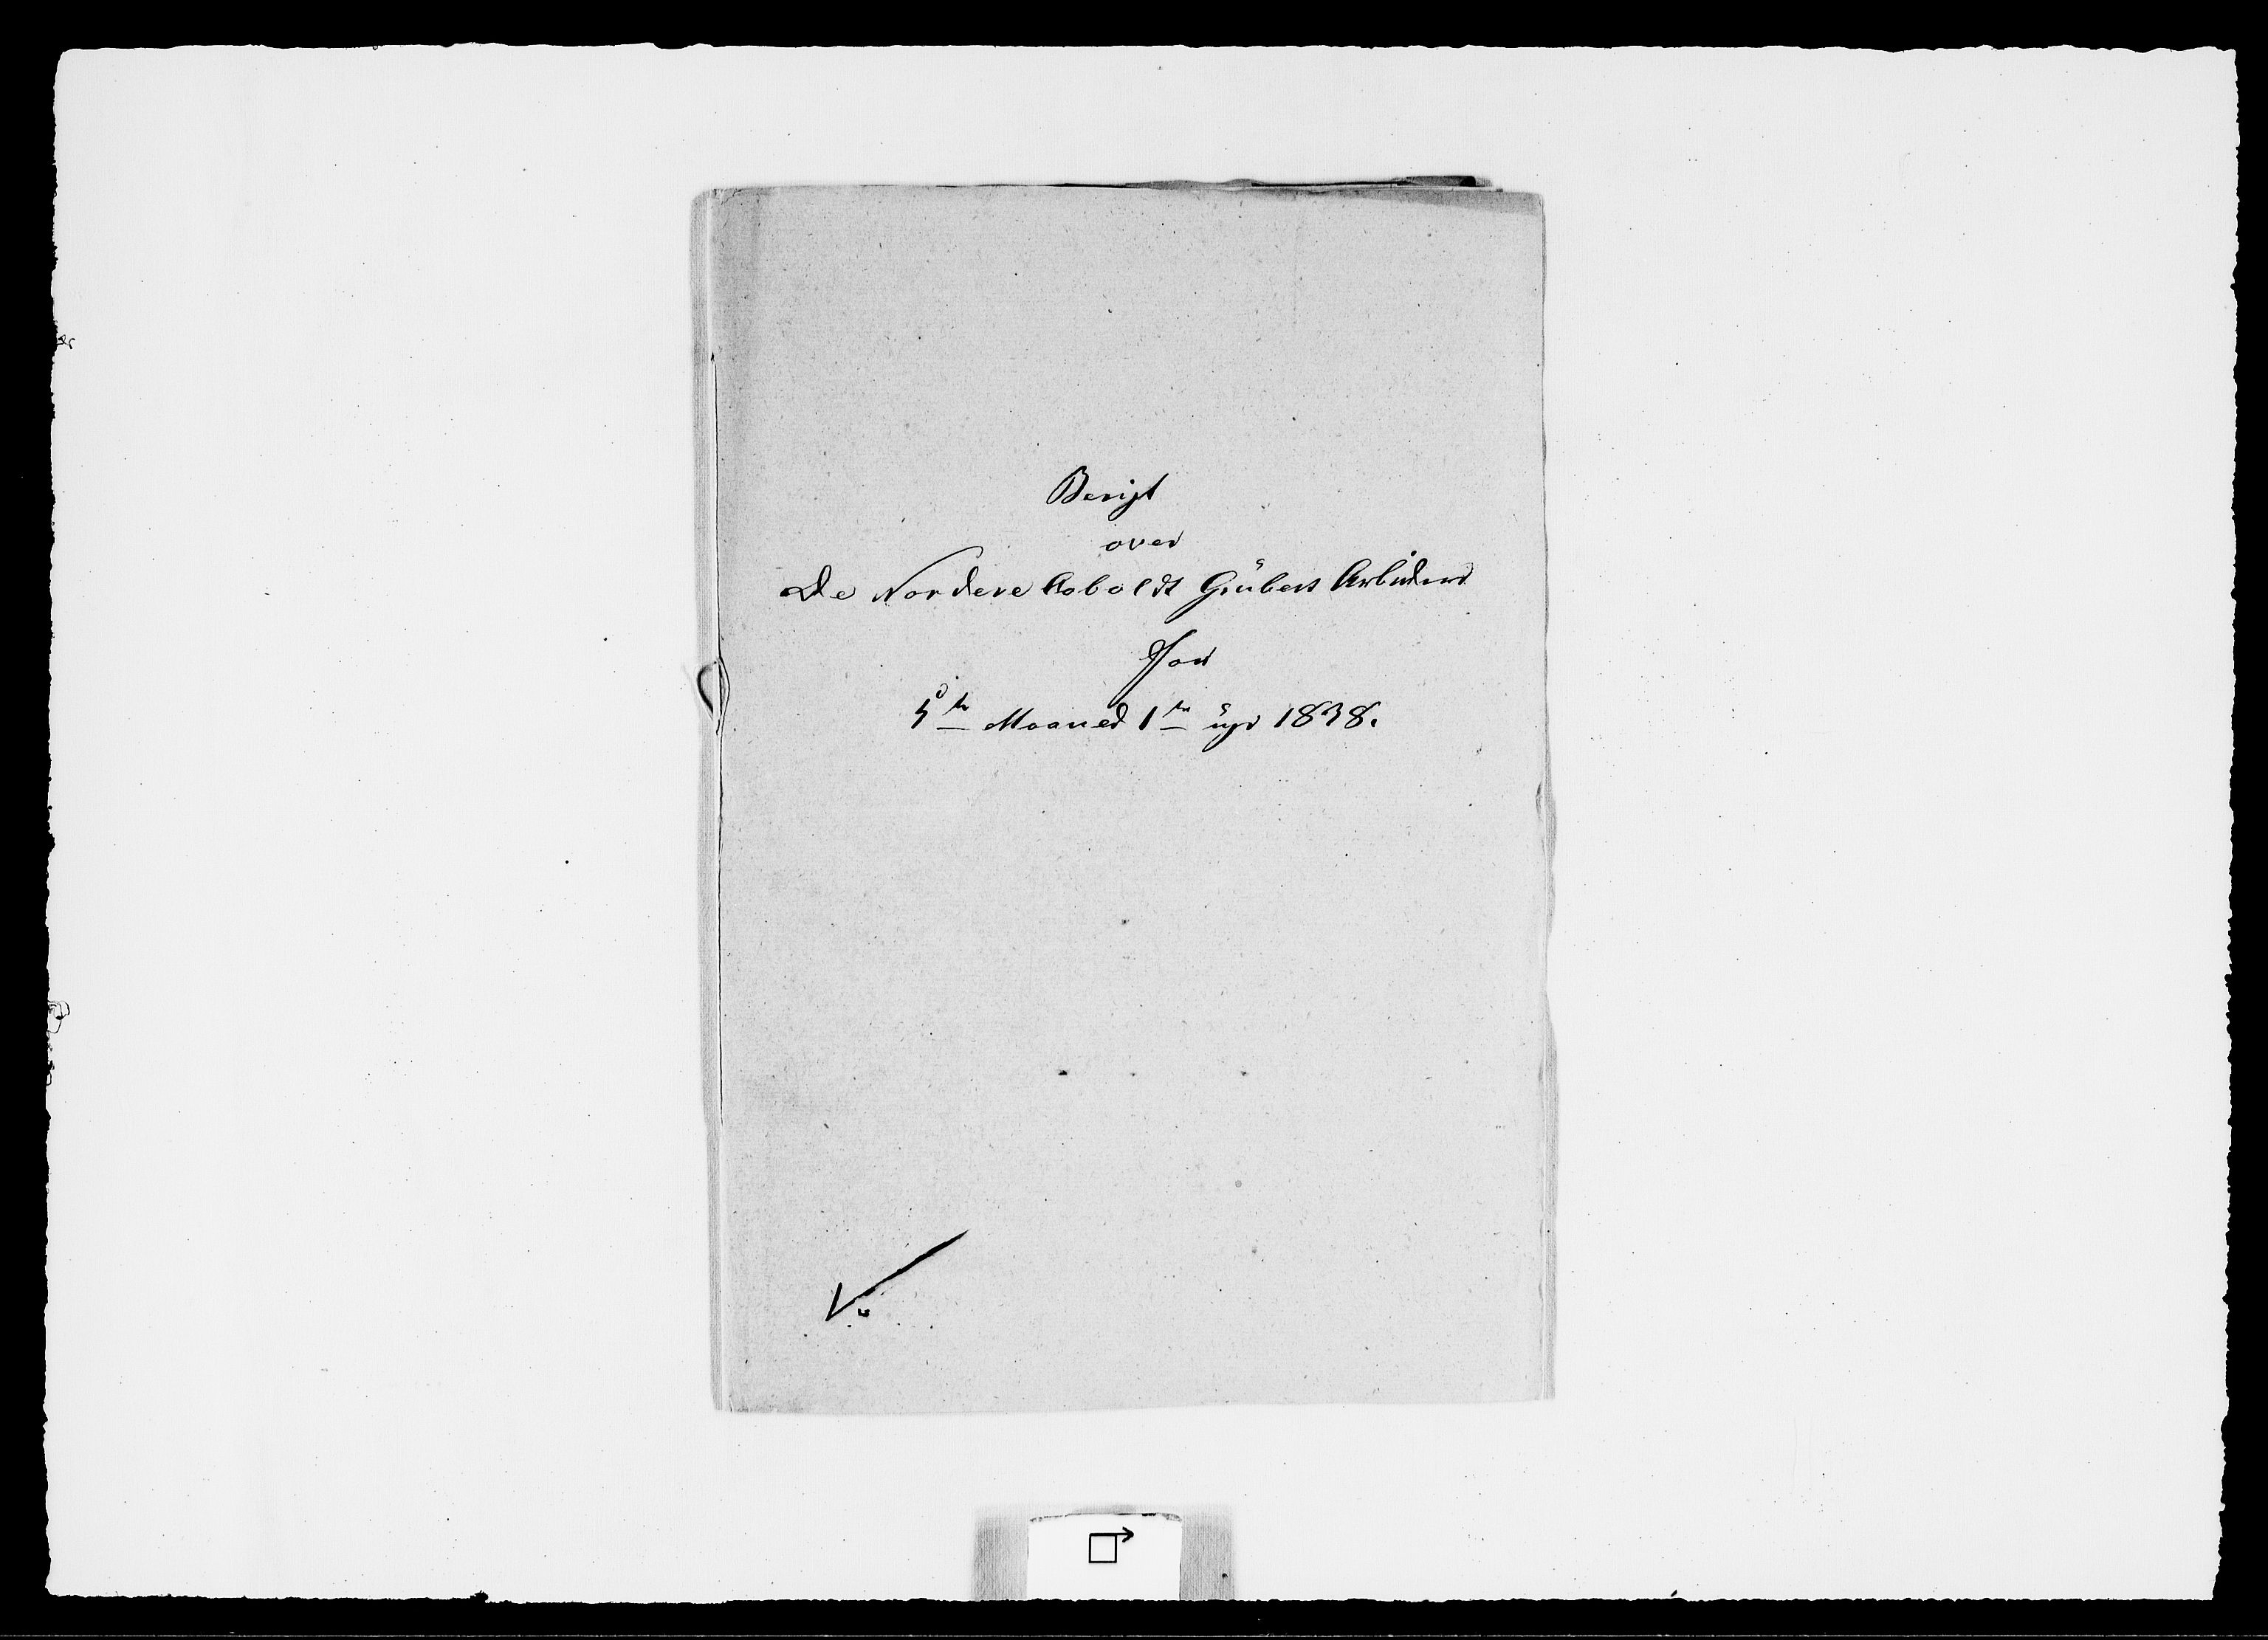 Berigt
over
De Nordere Koboldt Grübers Arbeider
For
5te Maaned 1te üge 1838.